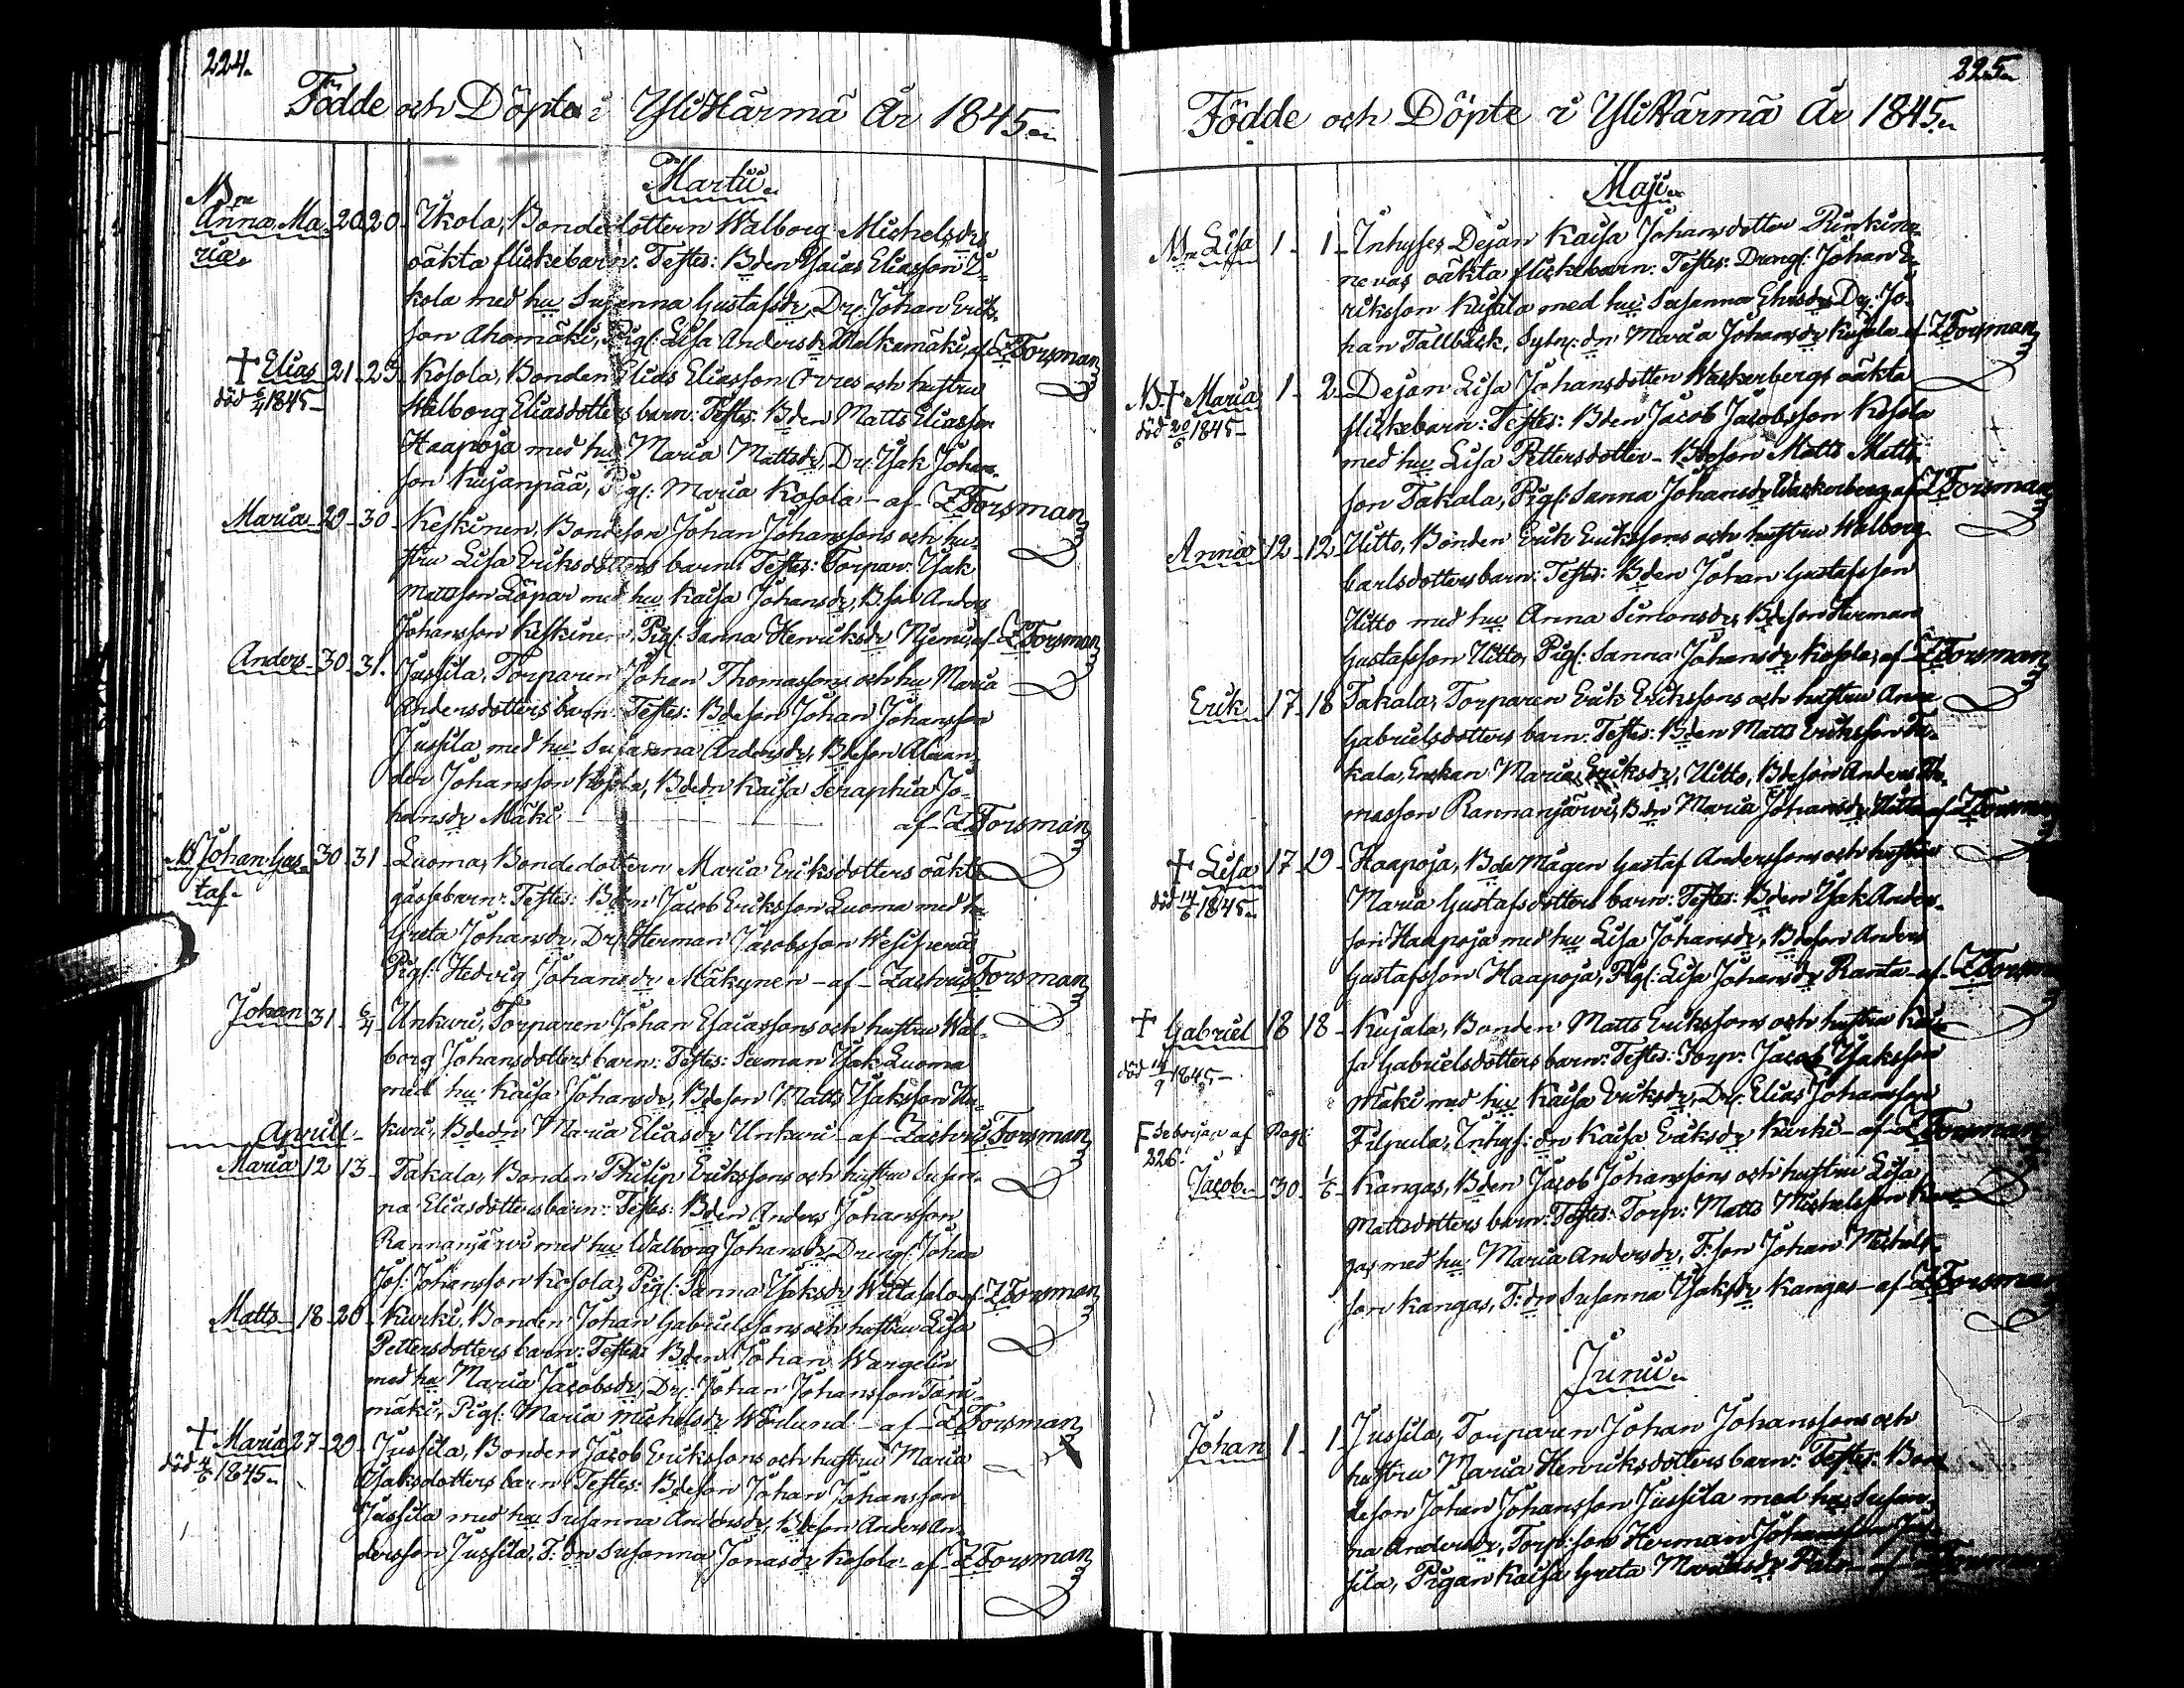 224.
Födde och Döpte i YliHärmä År 1845.
Martii
NB
Anna Ma- 20 20 Ikola, Bondedottern Walborg Michelsdrs
ria. oäkta flickebarn. Testes: Bden Isaias Eliasson I-
kola med hu Susanna Gustafsdr, Dr: Johan Erik-
son Ahomäki, Pig: Lisa Andersdr Malkamäki, af Z Forsman
+ Elias 21 23 Kosola, Bonden Elias Eliasson och hustru
död 1845 Walborg Eliasdotters barn: Testes: Bden Matts Eliasson
Haapoja med hu Maria Mattsdr, Dr: Isak Johans-
son Kujanpää, Pig: Maria Kosola af Z Forsman
Maria 29 30 Keskinen, Bondeson Johan Johanssons och hu-
stru Lisa Eriksdotters barn: Testes: Torpar: Isak
Mattsson Löpar med hu Kaisa Johansdr, B.son Anders
Johansson Keskinen, Pig: Sanna Henriksdr Njemi, af Z Forsman
Anders 30 31. Jussila, Torparen Johan Thomassons och hu Maria
Andersdotters barn: Testes: Bdeson Johan Johansson
Jussila med hu Susanna Andersdr, Bdeson Alexan-
der Johansson Kosola, Bdedr Kaisa Seraphia Jo-
hansdr Mäki af Z Forsman
NB Johan Gus- 30 31 Luoma, Bondedottern Maria Eriksdotters oäkta
taf gåssebarn: Testes: Bden Jacob Eriksson Luoma med hu
Greta Johansdr, Dr: Herman Jacobsson Wesiperä
Pig: Hedvig Johansdr Mäkynen af Zachris Forsman
Johan 31 6/4 Unkuri, Torparen Johan Esaiassons och hustru Wal-
borg Johansdotters barn: Testes: Isak Luoma
med hu Kaisa Johansdr, Bdeson Matts Isaksson Un-
Aprill kuri, Bdedr Maria Eliasdr Unkuri af Zachris Forsman
Maria 12 13 Takala, Bonden Philip Erikssons och hustru Susan-
na Eliasdotters barn: Testes: Bden Anders Johansson
Rannanjärvi med hu Walborg Johansdr, Dreng: Johan
Jos: Johansson Kosola, Pig: Sanna Isaksdr Wiitasalo af Z Forsman
Matts 18 20 Kurki, Bonden Johan Gabrielssons och hustru Lisa
Pettersdotters barn: Testes: Bden Johan Wargelin
med hu Maria Jacobsdr, Dr: Johan Johansson
mäki, Pig: Maria Michelsdr af Z Forsman
+ Maria 27 29 Jussila, Bonden Jacob Erikssons och hustru Maria
död 1845 Isaksdotters barn: Testes: Bdeson Johan Johansson
Jussila med hu Susanna Andersdr, Bdeson Anders An-
dersson Jussila, T: dr Susanna Jonasdr Kosola af Z Forsman
225.
Födde och Döpte i YliHärmä År 1845.
Maji
NB Lisa 1 1 Inhyses Dejan Kaisa Johansdotter Rinkine-
nevas oäkta flickebarn: Testes: Dreng: Johan E-
riksson Kujala med hu Susanna Ehrsdr, Dr: Jo-
han Tallbäck, Sytn: dr Maria Johansdr Kujala af Z Forsman
NB + Maria 1 2 Dejan Lisa Johansdotter Waskerbergs oäkta
död 20/6 1845 flickebarn: Testes: Bden Jacob Jacobsson Kosola
med hu Lisa Pettersdotter Bdeson Matts Matts-
son Takala, Pig: Sanna Johansdr Waskerberg af Z Forsman
Anna 12 12 Uitto, Bonden Erik Erikssons och hustru Walborg
Carlsdotters barn: Testes: Bden Johan Gustafsson
Uitto med hu Anna Simonsdr, Bdeson Herman
Gustafsson Uitto, Pig: Sanna Johansdr Kosola, af Z Forsman
Erik 17 18 Takala, Torparen Erik Erikssons och hustru Anna
Gabrielsdotters barn: Testes: Bden Matts Eriksson Ta-
kala, Enkan Maria Eriksdr, Uitto, Bdeson Anders Tho-
masson Rannanjärvi, B dr Maria Johansdr Uitto af Z Forsman
+ Lisa 17 19 Haapoja, Bde Mågen Gustaf Anderssons och hustru
död 14/6 1845 Maria Gustafsdotters barn: Testes: Bden Isak Anders-
son Haapoja med hu Lisa Johansdr, Bdeson Anders
Gustafsson Haapoja, Pig: Lisa Johansdr Ranta af Z Forsman
+ Gabriel 18 18 Kujala, Bonden Matts Erikssons och hustru Kai-
död 14/9 1845 sa Gabrielsdotters barn: Testes: Torp: Jacob Isaksson
Mäki med hu Kaisa Eriksdr, Dr: Elias Johansson
F Se början af Pag: Filpula, Inhys: dr Kaisa Eriksdr Kurki af Z Forsman
226.
Jacob 30 1/6 Kangas, Bden Jacob Johanssons och hustru Lisa
Mattsdotters barn: Testes: Torp: Matts Michelsson Kan-
gas med hu Maria Andersdr, T: son Johan Michels-
son Kangas, T: dr Susanna Isaksdr Kangas af Z Forsman
Junii
Johan 1 1 Jussila, Torparen Johan Johanssons och
hustru Maria Henriksdotters barn: Testes: Bon-
deson Johan Johansson Jussila med hu Susan-
na Andersdr, Torp: son Herman Johansson Jus-
sila, Pigan Kaisa Greta af Z Forsman